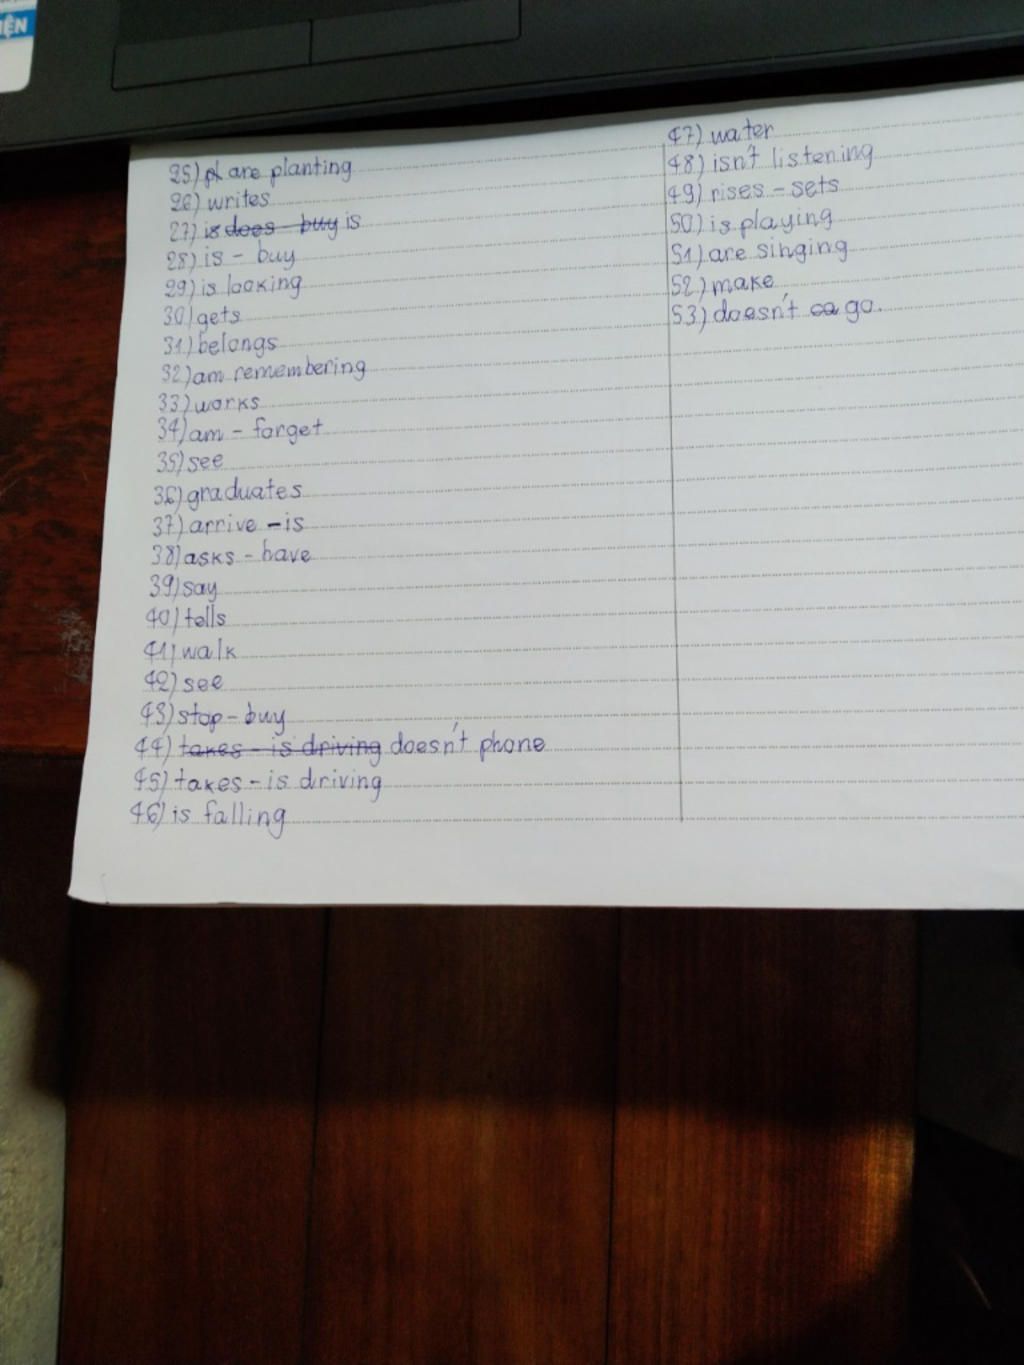 IỆN
25) pl are planting
26) writes
27) is does - buy is
28) is - buy
29) is looking
30) gets
31) belongs
32) am remembering
33) works
34) am - forget
35) see
36) graduates
37) arrive - is
38) asks - have
39) say
40) tells
41) walk
42) see
43) stop - buy
44) takes - is driving doesn't phone
45) takes - is driving
46) is falling
47) water
48) isn't listening
49) rises - sets
50) is playing
51) are singing
52) make
53) doesn't go.